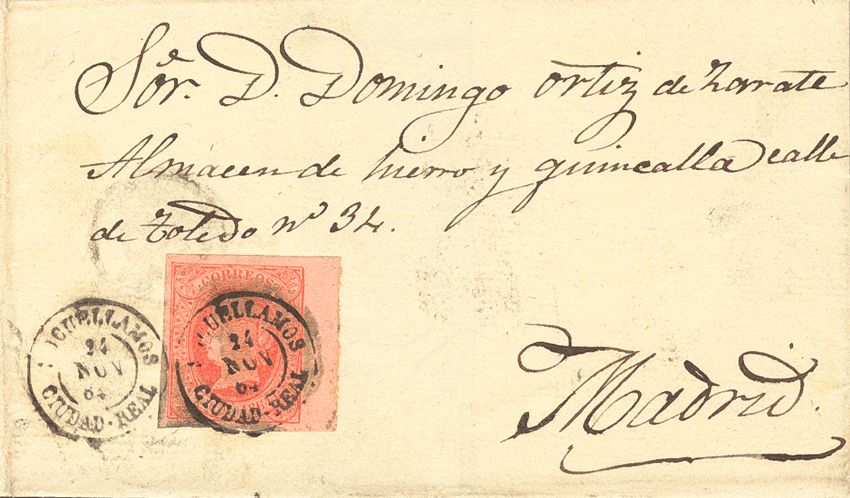 Sor. D. Domingo Ortiz de Zarate
Almacen de hierro y quincalla calle
de Toledo nº 34.
CORREOS
CUELLAMOS
24
NOV
64
CIUDAD-REAL
UELLAMOS
24
NOV
64
CIUDAD-REAL
Madrid.